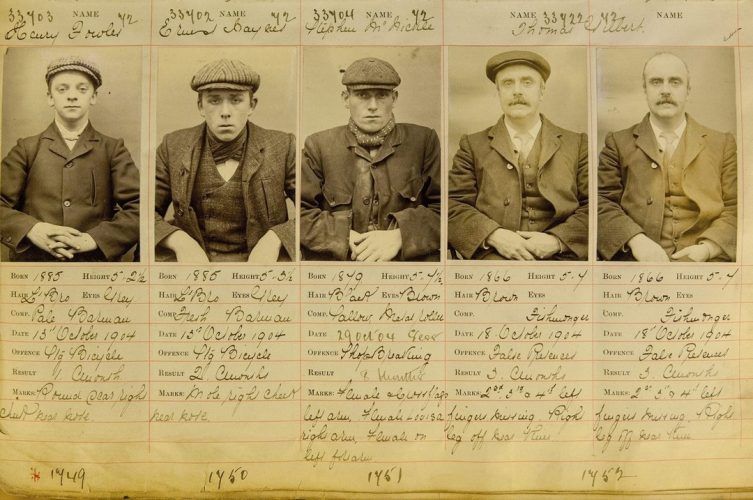 33703 NAME 72
Henry Fowler
BORN 1885 HEIGHT 5-2½
HAIR L' Bro EYES Grey
COMP. Pale Barman
DATE 13th October 1904
OFFENCE Bicycle
RESULT 1 month
MARKS Round scar right
cheek near nose.
1749
33702 NAME 72
Ernest
BORN 1885 HEIGHT 5-5½
HAIR L' Bro EYES Grey
COMP. Fresh Barman
DATE 13th October 1904
OFFENCE Bicycle
RESULT 2 months
MARKS Mole right cheek
near nose.
1750
33704 NAME 72
Stephen
BORN HEIGHT 5-7½
HAIR Black EYES Brown
COMP. Sallow
DATE 29 Oct 04
OFFENCE Shop Breaking
RESULT months
MARKS Female
left arm. Female
right arm, Female on
left
1751
33722 NAME 72
Thomas
BORN 1866 HEIGHT 5-4
HAIR Brown EYES
COMP. Fishmonger
DATE 18 October 1904
OFFENCE False Pretences
RESULT 3. months
MARKS 2nd 3rd & 4th left
fingers missing. Right
leg off near knee
NAME
BORN 1866 HEIGHT 5-4
HAIR Brown EYES
COMP. Fishmonger
DATE 18th October 1904
OFFENCE False Pretences
RESULT 3. months
MARKS 2nd 3rd & 4th left
fingers missing. Right
leg off near knee
1752